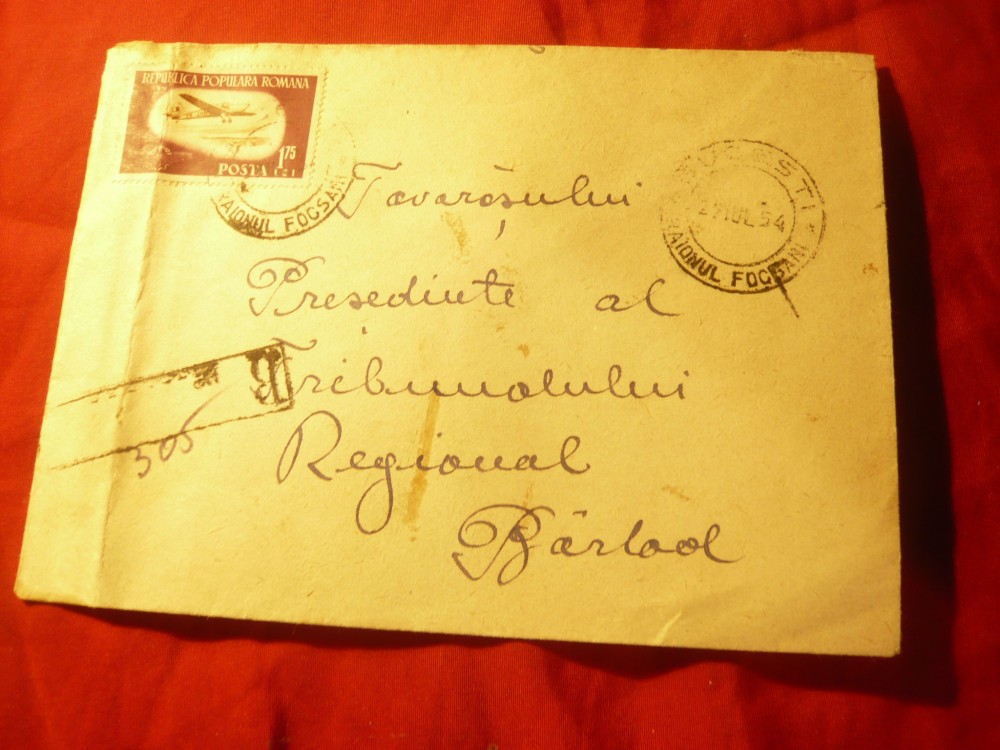 REPUBLICA POPULARA ROMANA
POSTA 1 75
LEI
RAIONUL FOCSANI
IUL. 54
RAIONUL FOCSANI
Tovarășului
Președinte al
Tribunalului
Regional
Bârlad
R
305